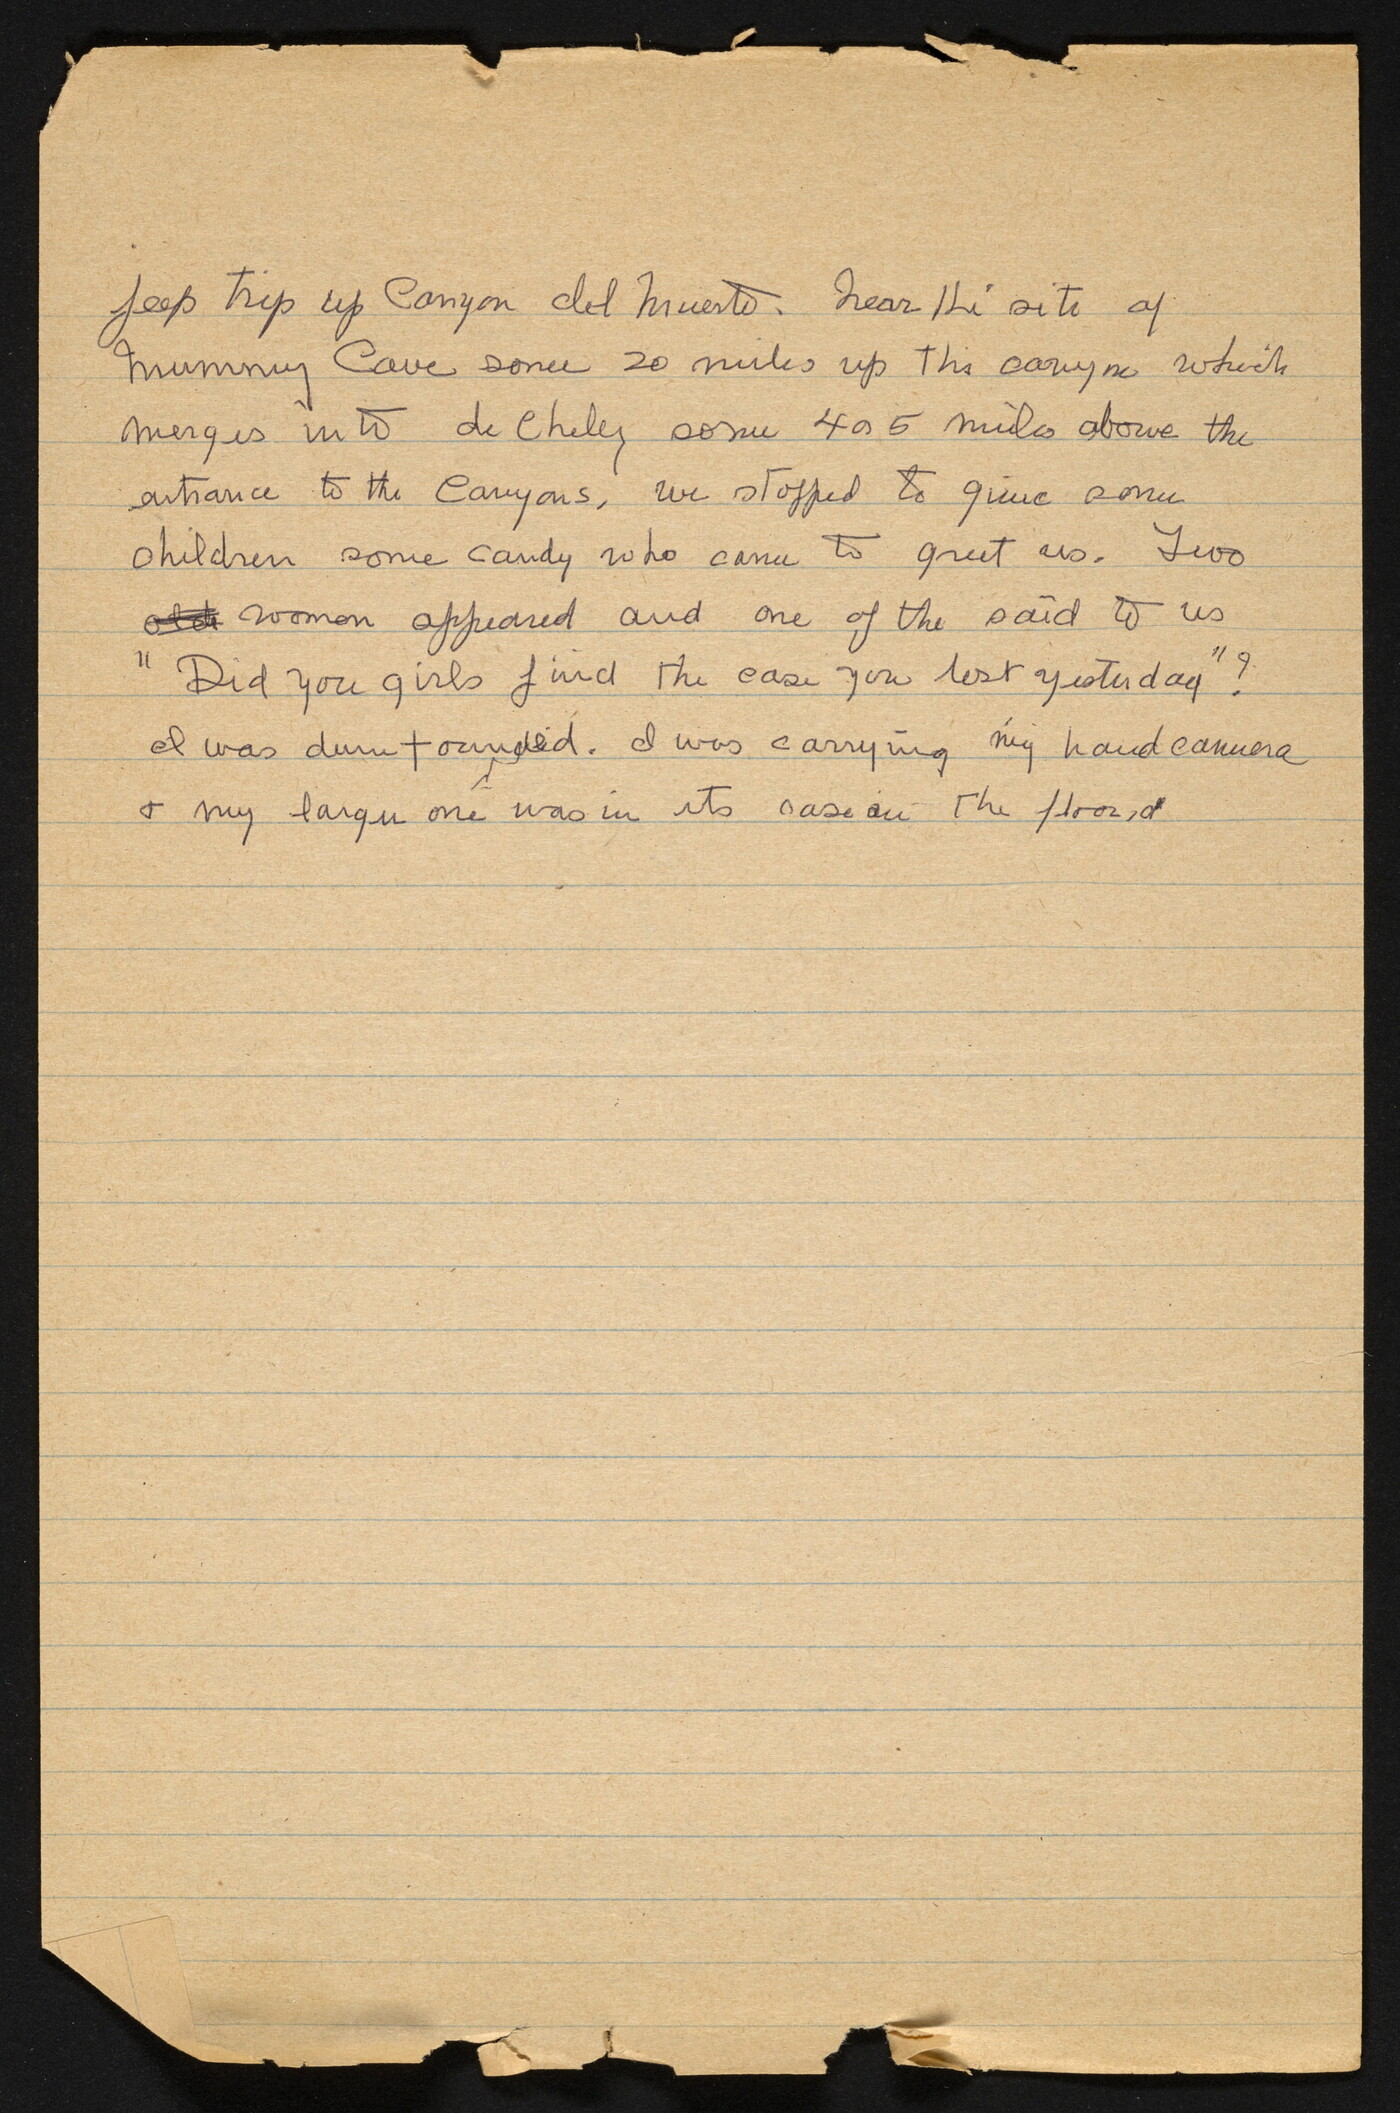 jeep trip up Canyon del Muerto. Near the site of
Mummy Cave some 20 miles up this canyon which
merges into de Chelly some 4 or 5 miles above the
entrance to the Canyons, we stopped to give some
children some candy who came to greet us. Two
old women appeared and one of the said to us
"Did you girls find the case you lost yesterday"?
I was dumfounded. I was carrying my hand camera
& my larger one was in its case on the floor,